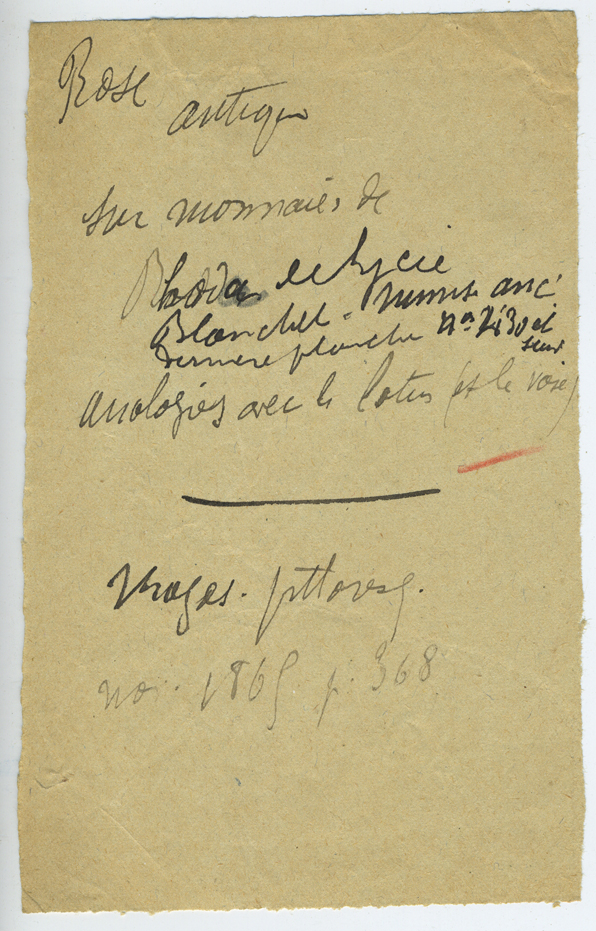 Rose
antique
sur monnaies de
Rhoda de Lycie
Blanchet. numis anc
dernière planche n° et suiv
analogies avec le lotus (et le
Magas. pittoresq.
nov. 1865 p. 368